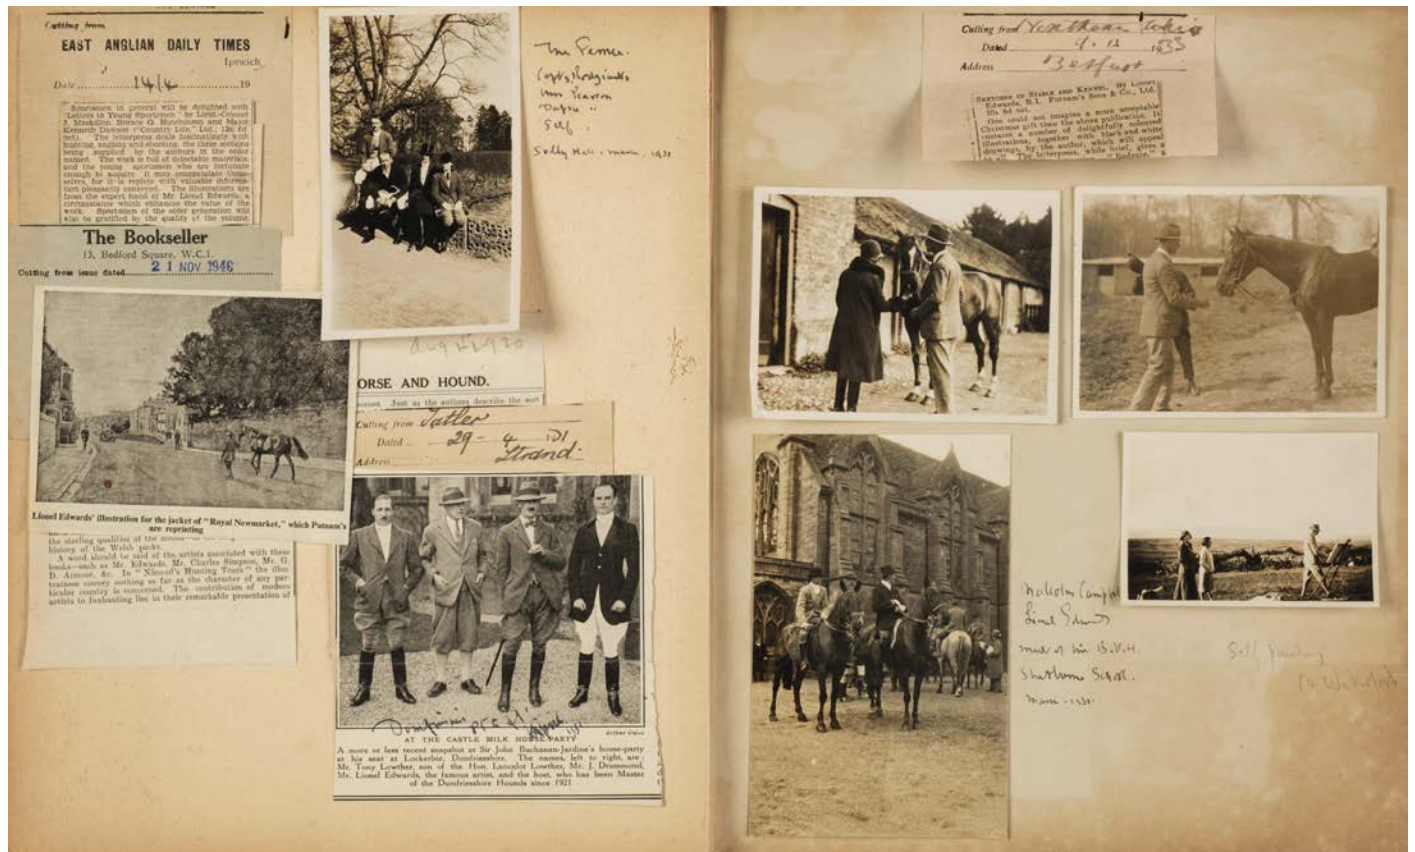 Cutting from
EAST ANGLIAN DAILY TIMES
Ipswich
Date 14/4 19
Sportsmen in general will be delighted with
"Letters to Young Sportsmen" by Lieut.-Colonel
J. Mackillop, Horace G. Hutchinson and Major
Kenneth Dawson ("Country Life," Ltd.; 12s 6d
net). The letterpress deals fascinatingly with
hunting, angling and shooting, the three sections
being supplied by the authors in the order
named. The work is full of delectable materials,
and the young sportsmen who are fortunate
enough to acquire it may congratulate them-
selves, for it is replete with valuable informa-
tion pleasantly conveyed. The illustrations are
from the expert hand of Mr. Lionel Edwards, a
circumstance which enhances the value of the
work. Sportsmen of the older generation will
also be gratified by the quality of the volume.
The Bookseller
13, Bedford Square, W.C.1.
Cutting from issue dated 21 NOV 1946
Lionel Edwards' illustration for the jacket of "Royal Newmarket," which Putnam's
are reprinting
the sterling qualities of the
history of the Welsh packs.
A word should be said of the artists associated with these
books—such as Mr. Edwards, Mr. Charles Simpson, Mr. G.
D. Armour, &c. In "Nimrod's Hunting Tours" the illus-
trations convey nothing so far as the character of any par-
ticular country is concerned. The contribution of modern
artists to foxhunting lies in their remarkable presentation of
Mrs
Self
March. 1931
ORSE AND HOUND.
Just as the authors describe the sort
Cutting from Tatler
Dated 29-4-31
Address Strand.
Arthur Owen
AT THE CASTLE MILK HOUSE-PARTY
A more or less recent snapshot at Sir John Buchanan-Jardine's house-party
at his seat at Lockerbie, Dumfriesshire. The names, left to right, are:
Mr. Tony Lowther, son of the Hon. Lancelot Lowther, Mr. J. Drummond,
Mr. Lionel Edwards, the famous artist, and the host, who has been Master
of the Dumfriesshire Hounds since 1921
Cutting from Northern Whig
Dated 9.12 1933
Address Belfast
SKETCHES IN STABLE AND KENNEL. By Lionel
Edwards, R.I. Putnam's Sons & Co., Ltd.
10s 6d net.
One could not imagine a more acceptable
Christmas gift than the above publication. It
contains a number of delightfully coloured
illustrations, together with black and white
drawings, by the author, which will appeal
to all. The letterpress, while brief, gives a
Malcolm Campbell
Lionel Edwards
meet of the B.V.H.
Sherborne School.
March. 1931.
Self painting